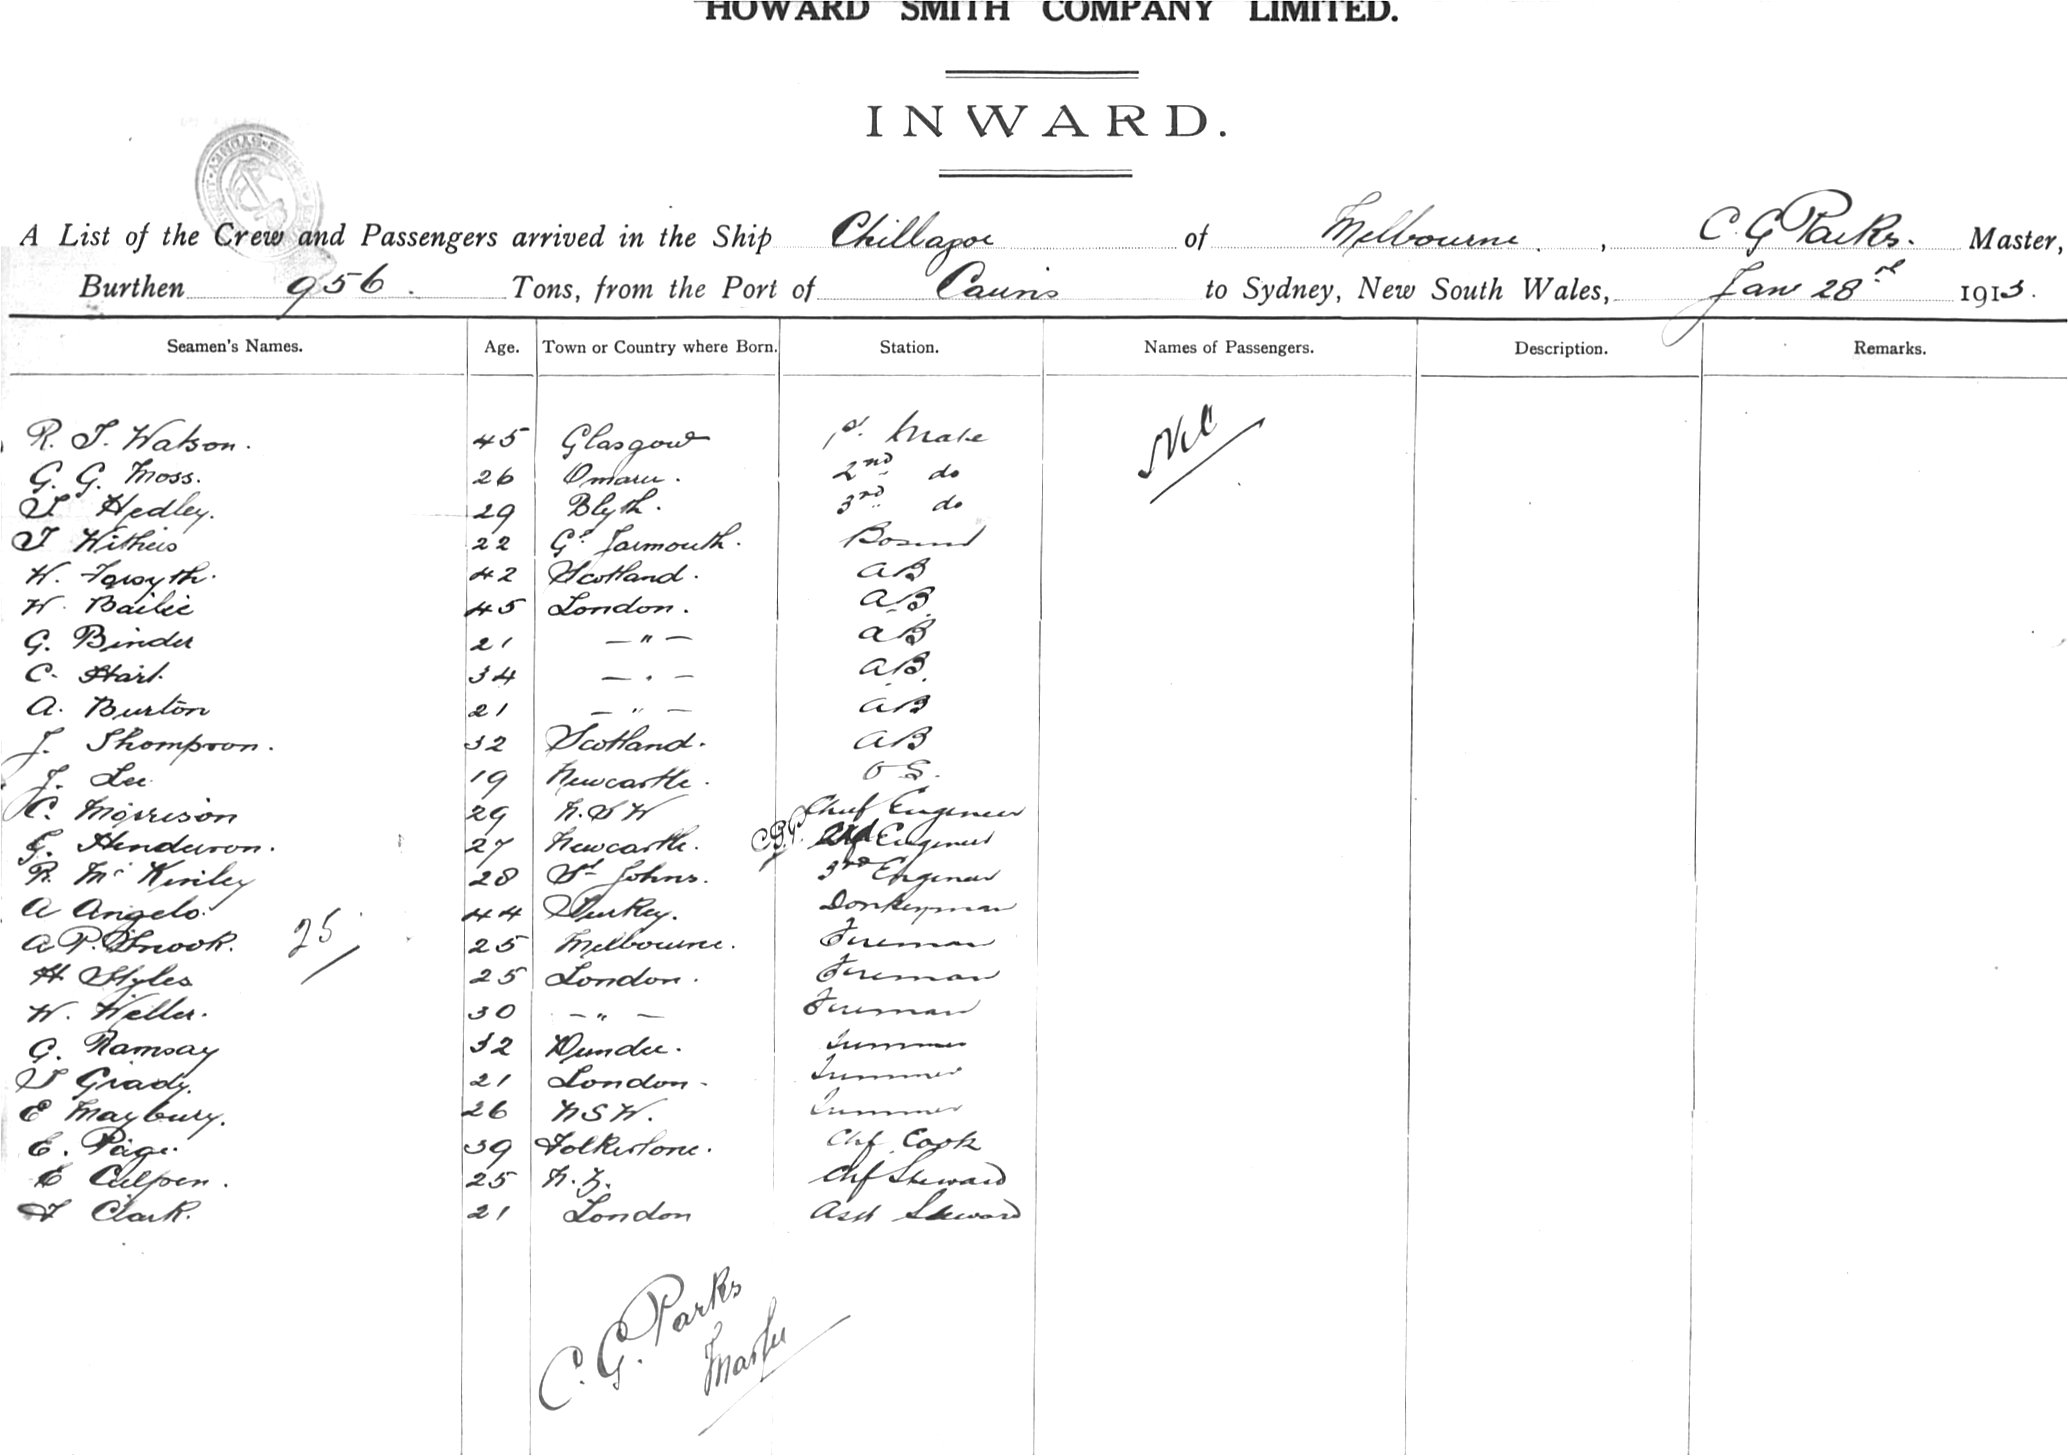 HOWARD SMITH COMPANY LIMITED.
INWARD.
A List of the Crew and Passengers arrived in the Ship Chillagoe of Melbourne, C. G Parks. Master,
Burthen 956. Tons, from the Port of Cairns to Sydney, New South Wales, Jan 28 1913.
Seamen's Names. Age. Town or Country where Born. Station. Names of Passengers. Description. Remarks.
R. T. Watson. 45 Glasgow 1st. Mate Nil
G. G. Moss. 26 Omaru. 2nd do
T Hedley. 29 Blyth. 3rd do
T Withers 22 Gt Yarmouth. Bosun
W. Forsyth. 42 Scotland. AB
W. Bailie 45 London. AB.
G. Binder 21 — " — AB
C. Hart. 34 — " — AB.
A. Burton 21 — " — AB
J. Thompson. 32 Scotland. AB
J. Lee 19 Newcastle. O S.
C. Morrison 29 N.S W Chief Engineer
G. Henderson. 27 Newcastle. C.G.P. 2nd Engineer
R. Mc Kinley 28 St Johns. 3rd Engineer
A Angelo. 44 Turkey. Donkeyman
A P. Snook. 25 Melbourne. Fireman
25
H Styles 25 London. Fireman
W. Weller. 30 — " — Fireman
G. Ramsay 32 Dundee. Trimmer
T Grady. 21 London. Trimmer
E Maybury. 26 NSW. Trimmer
E. Page. 39 Folkestone. Chf. Cook
E Culpan. 25 N. Z. Chf Steward
F Clark. 21 London Asst Steward
C. G. Parks
Master